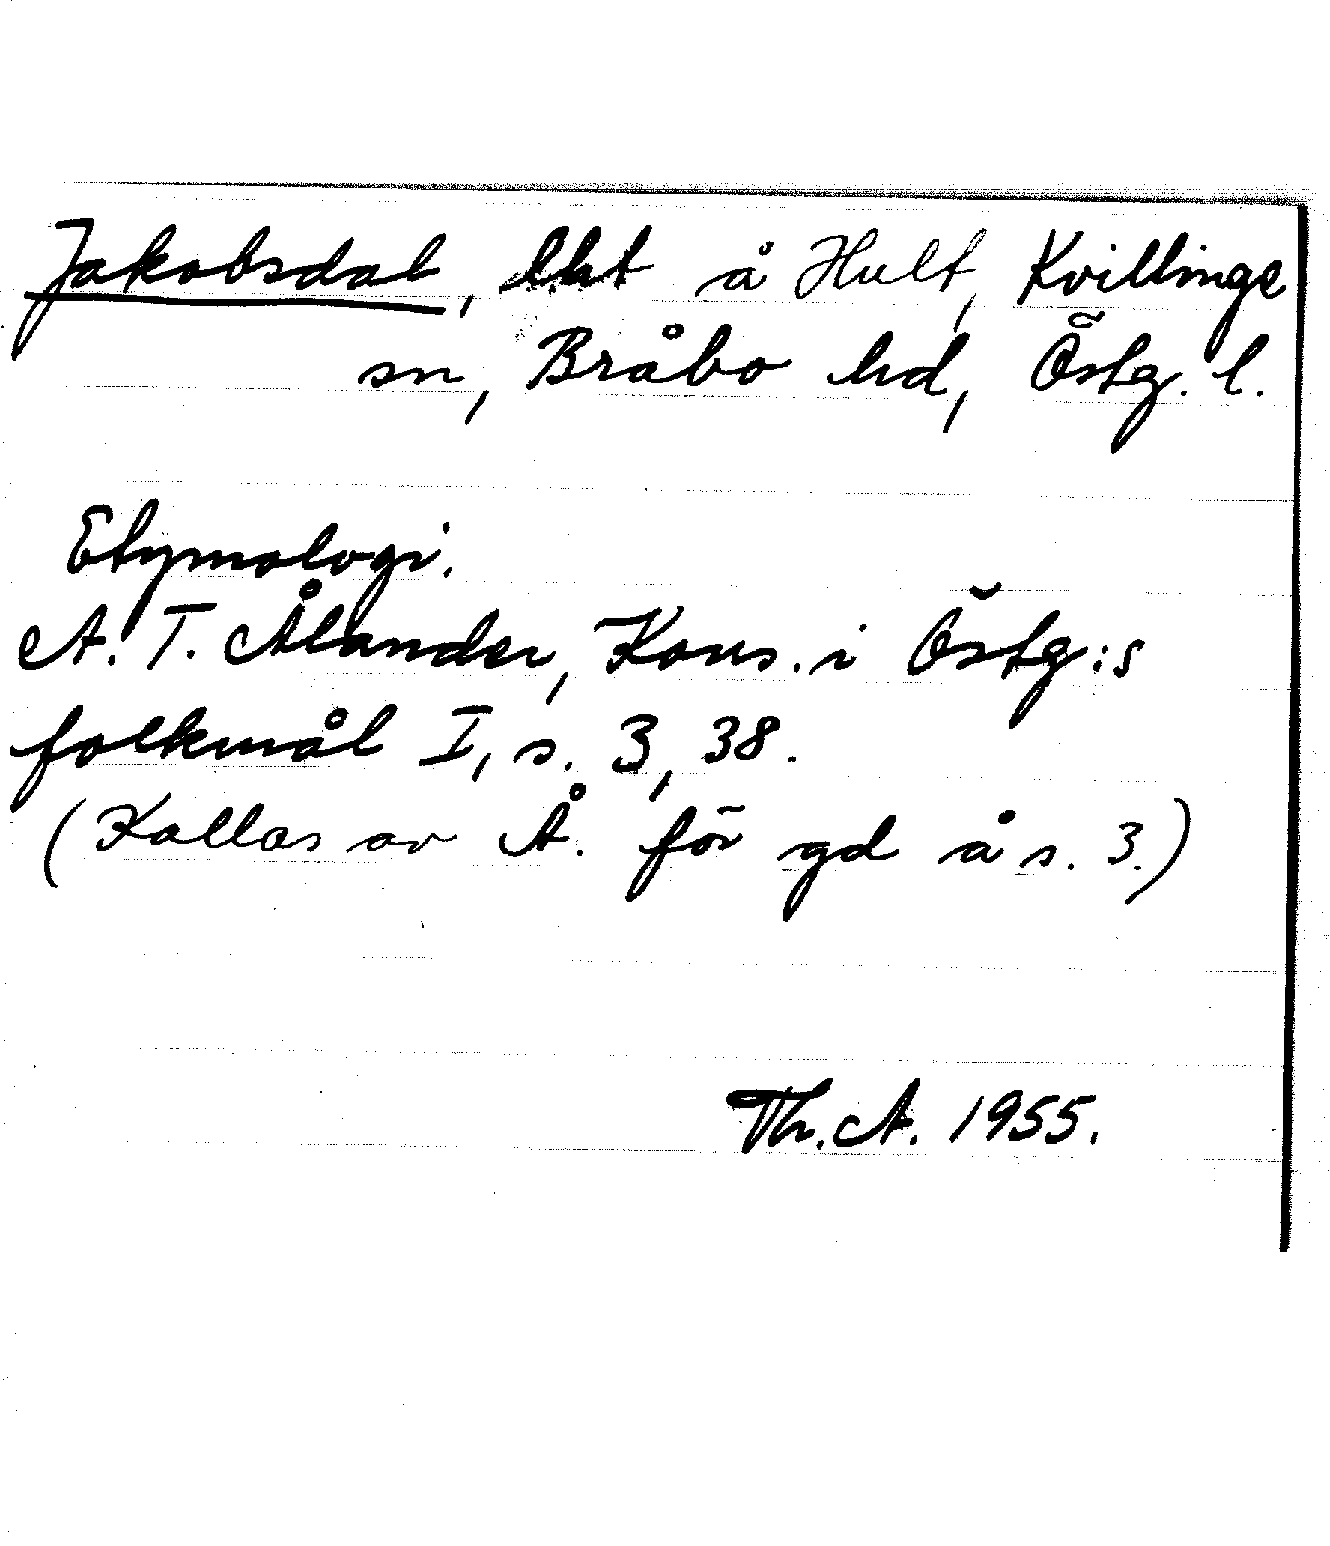 Jakobsdal, lht å Hult, Kvillinge
sn, Bråbo hd, Östg. l.
Etymologi.
A. T. Ålander, Kons. i Östg:s
folkmål I, s. 3, 38.
(Kallas av Å. för gd å s. 3.)
Th. A. 1955.